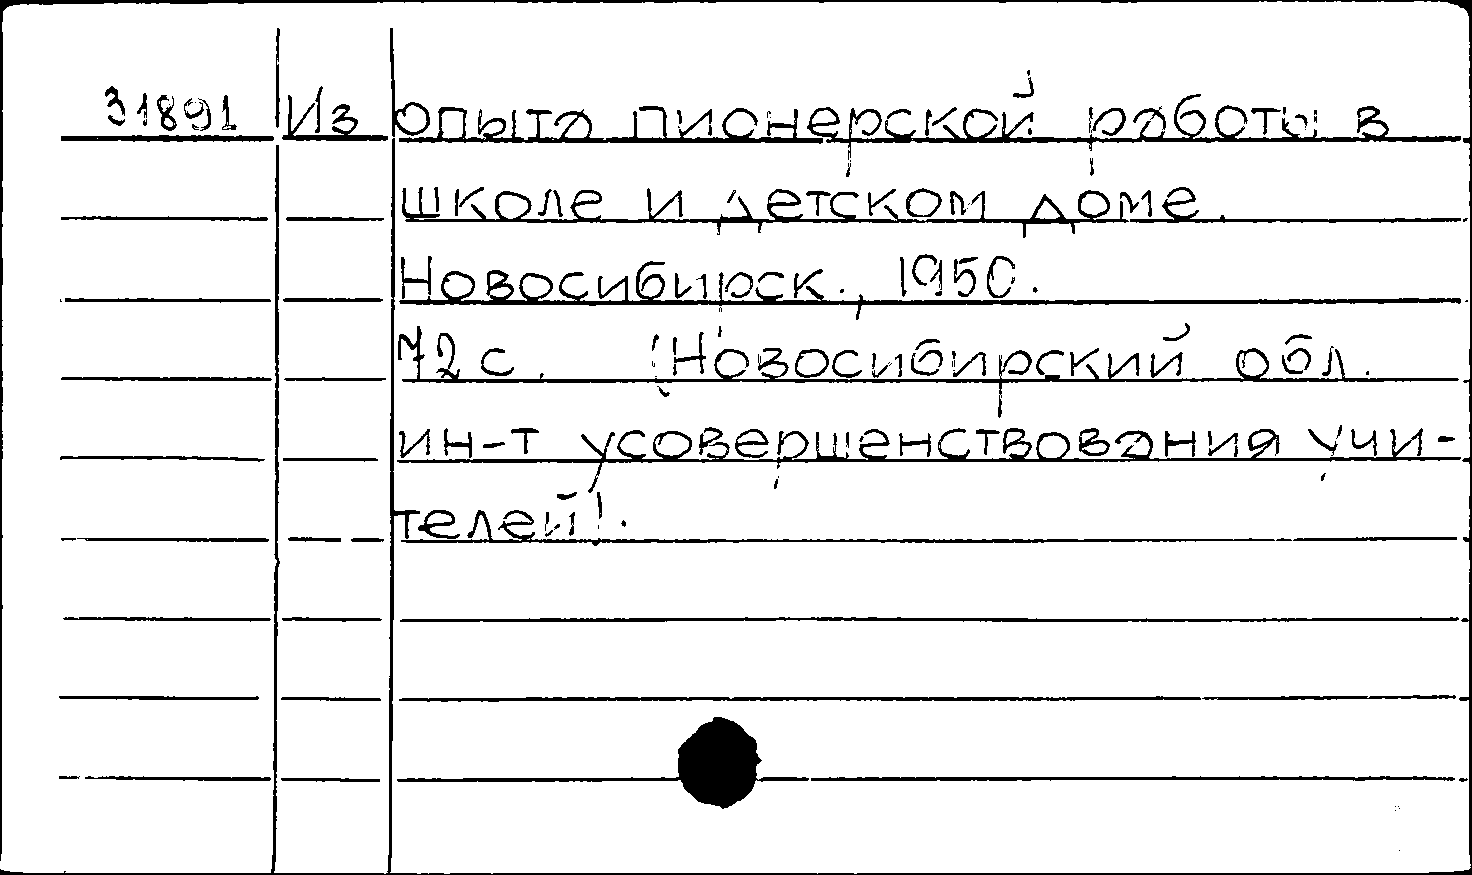 31891 Из опыта пионерской работы в
школе и детском доме.
Новосибирск., 1950.
72 с. (Новосибирский обл.
ин-т усовершенствования учи-
телей).